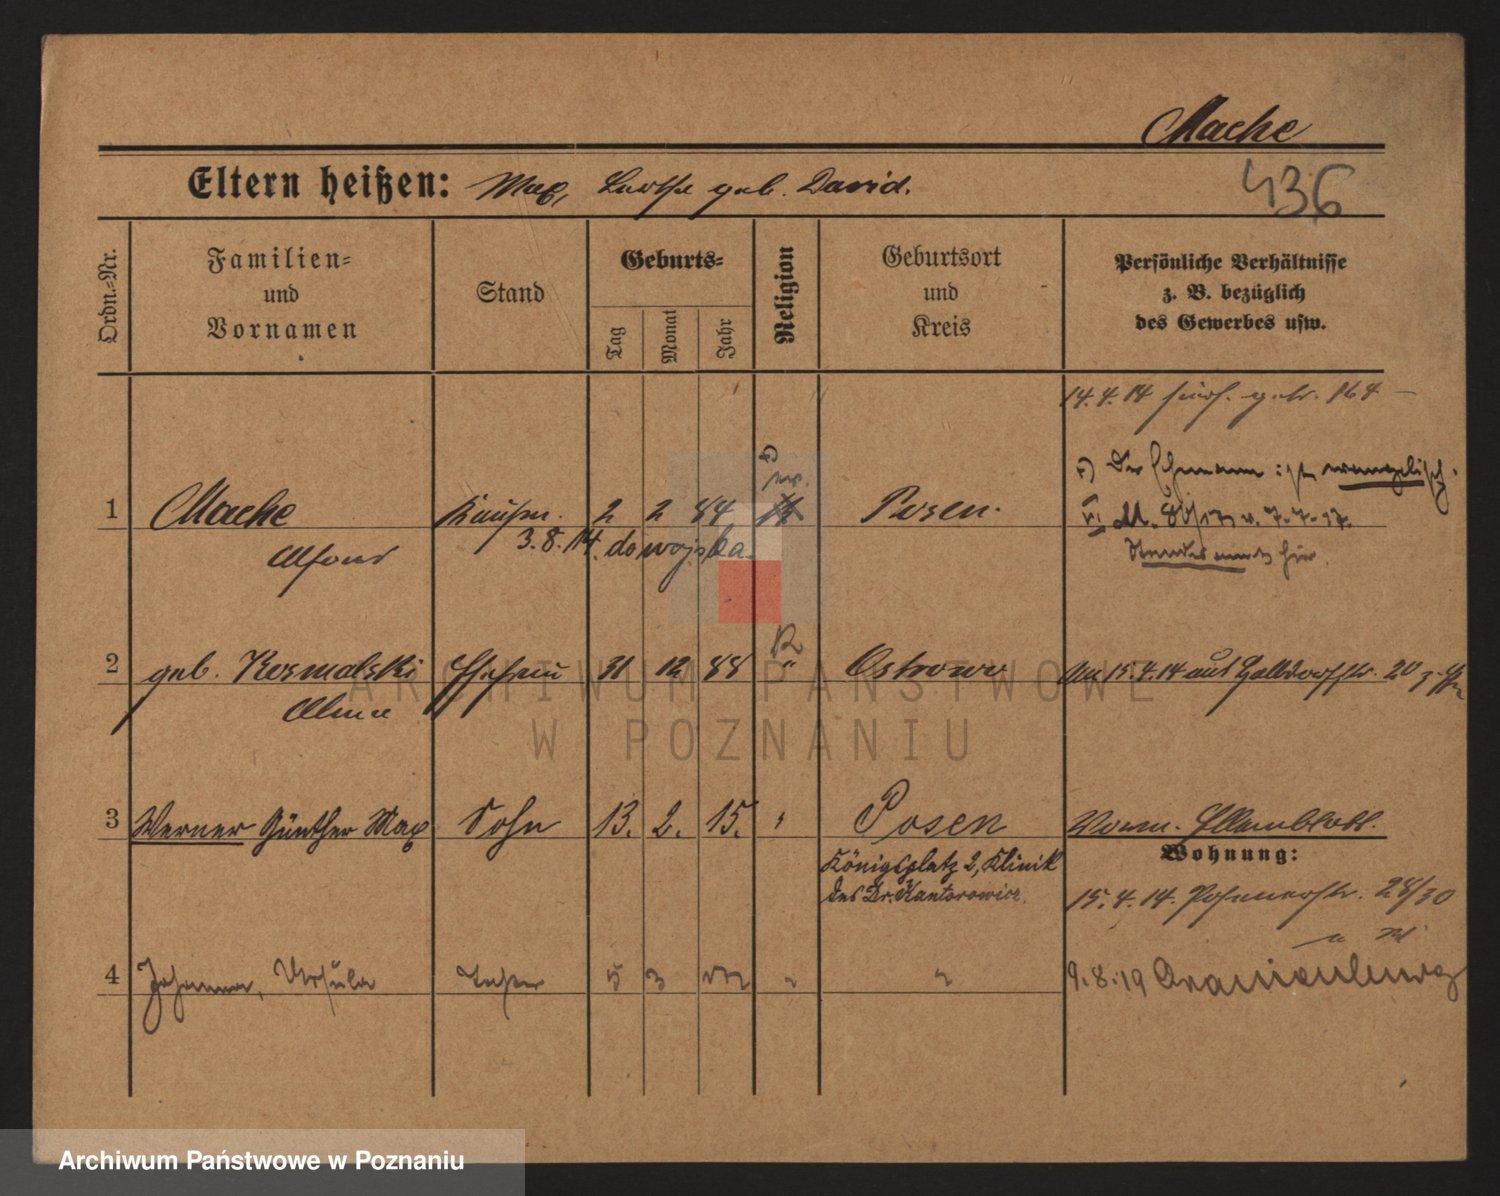 Mache
436
Eltern heißen: Max, Berthe geb. David.
Ordn.-Nr.
Familien- und Vornamen
Stand
Geburts-
Tag
Monat
Jahr
Religion
Geburtsort und Kreis
Persönliche Verhältnisse
z. B. bezüglich
des Gewerbes usw.
14.4.14
Der Ehemann ist evangelisch.
1 Mache Kaufm. 2 2 84 Posen.
Alfons
3.8.14. do wojska
7.7.17.
Standesamts hier.
2 geb. Kosmalski Ehefrau 31 12 88 " Ostrowo
Alma
15.4.14 aus 20
3 Werner Günther Max Sohn 13. 2. 15. " Posen
Königsplatz 2, Klinik
des Dr. Kantorowicz.
Wohnung:
15.4.14. 28/30
4 Johanna, Ursula Tochter 5 3 "
9.8.19
ARCHIWUM PAŃSTWOWE
W POZNANIU
Archiwum Państwowe w Poznaniu